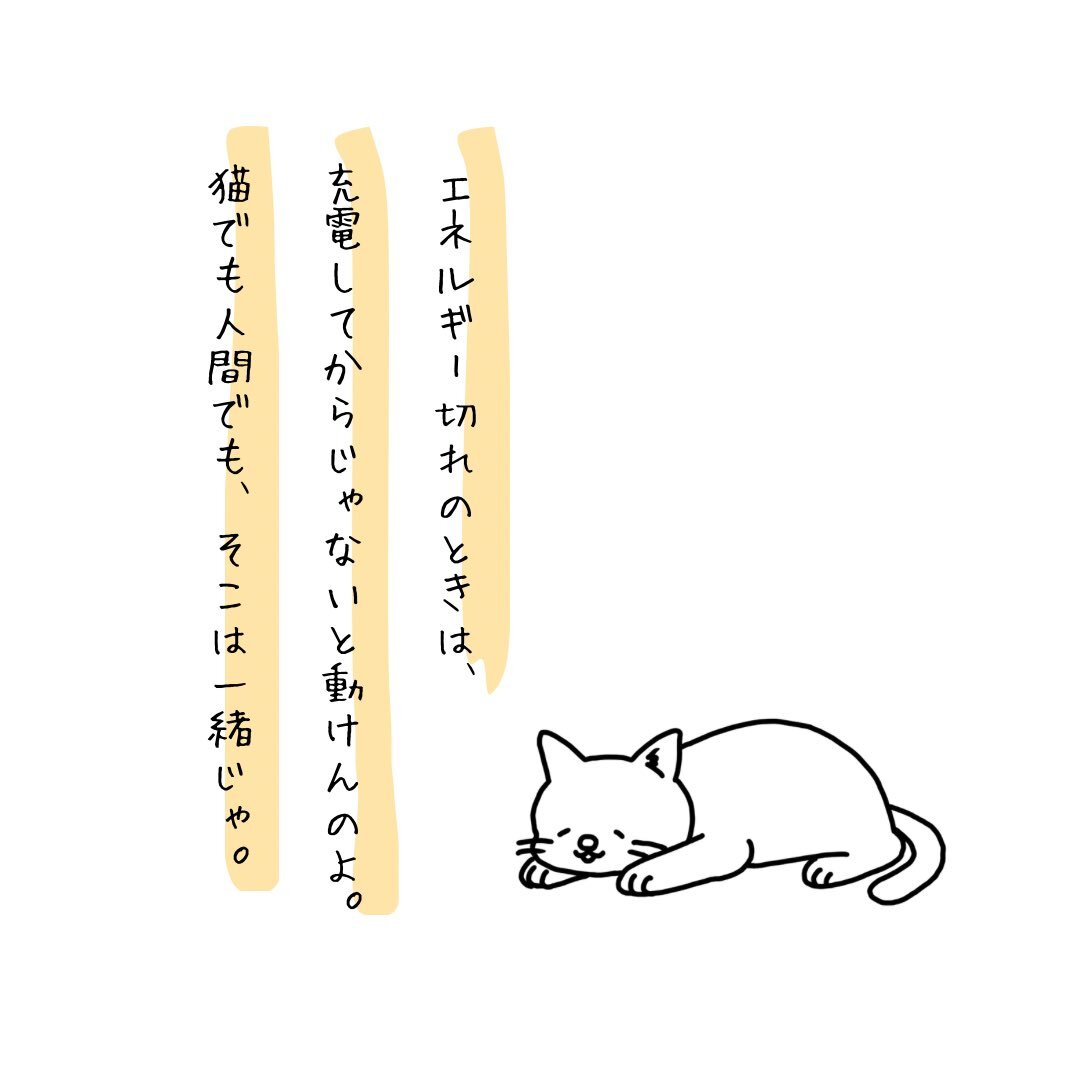 エネルギー切れのときは、
充電してからじゃないと動けんのよ。
猫でも人間でも、そこは一緒じゃ。